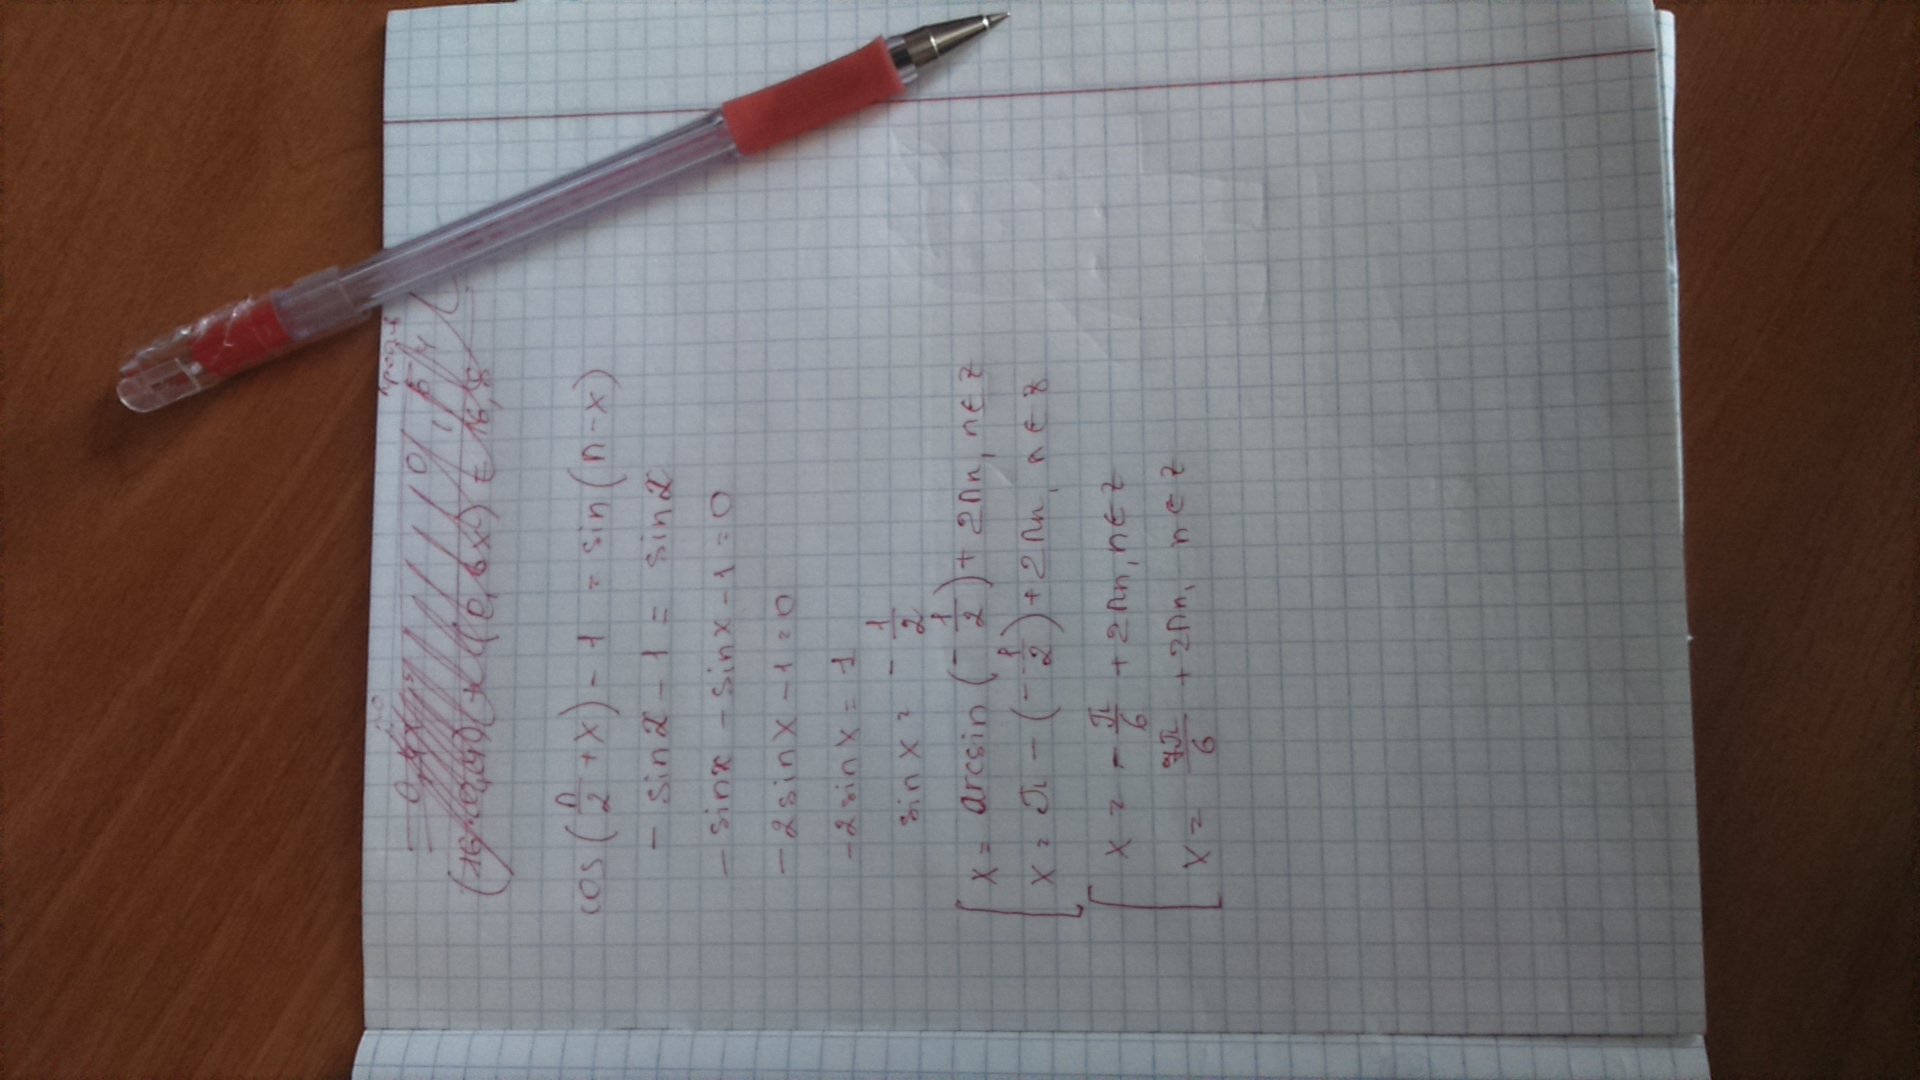 cos(п/2 + x) - 1 = sin(п - x)
- sin x - 1 = sin x
- sin x - sin x - 1 = 0
- 2 sin x - 1 = 0
- 2 sin x = 1
sin x = - 1/2
[ x = arcsin(- 1/2) + 2пn, n ∈ z
x = π - (- 1/2) + 2пn, n ∈ z
[ x = - π/6 + 2пn, n ∈ z
x = 7π/6 + 2пn, n ∈ z